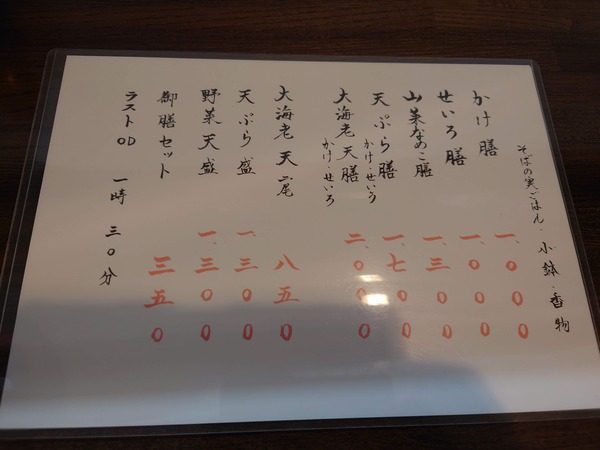 そばの実ごはん・小鉢・香物
かけ膳 一、〇〇〇
せいろ膳 一、〇〇〇
山菜なめこ膳 一、三〇〇
天ぷら膳 かけ・せいろ 一、七〇〇
大海老天膳 かけ・せいろ 二、〇〇〇
大海老天 二尾 八五〇
天ぷら盛 一、三〇〇
野菜天盛 一、三〇〇
御膳セット 三五〇
ラストOD 一時三〇分